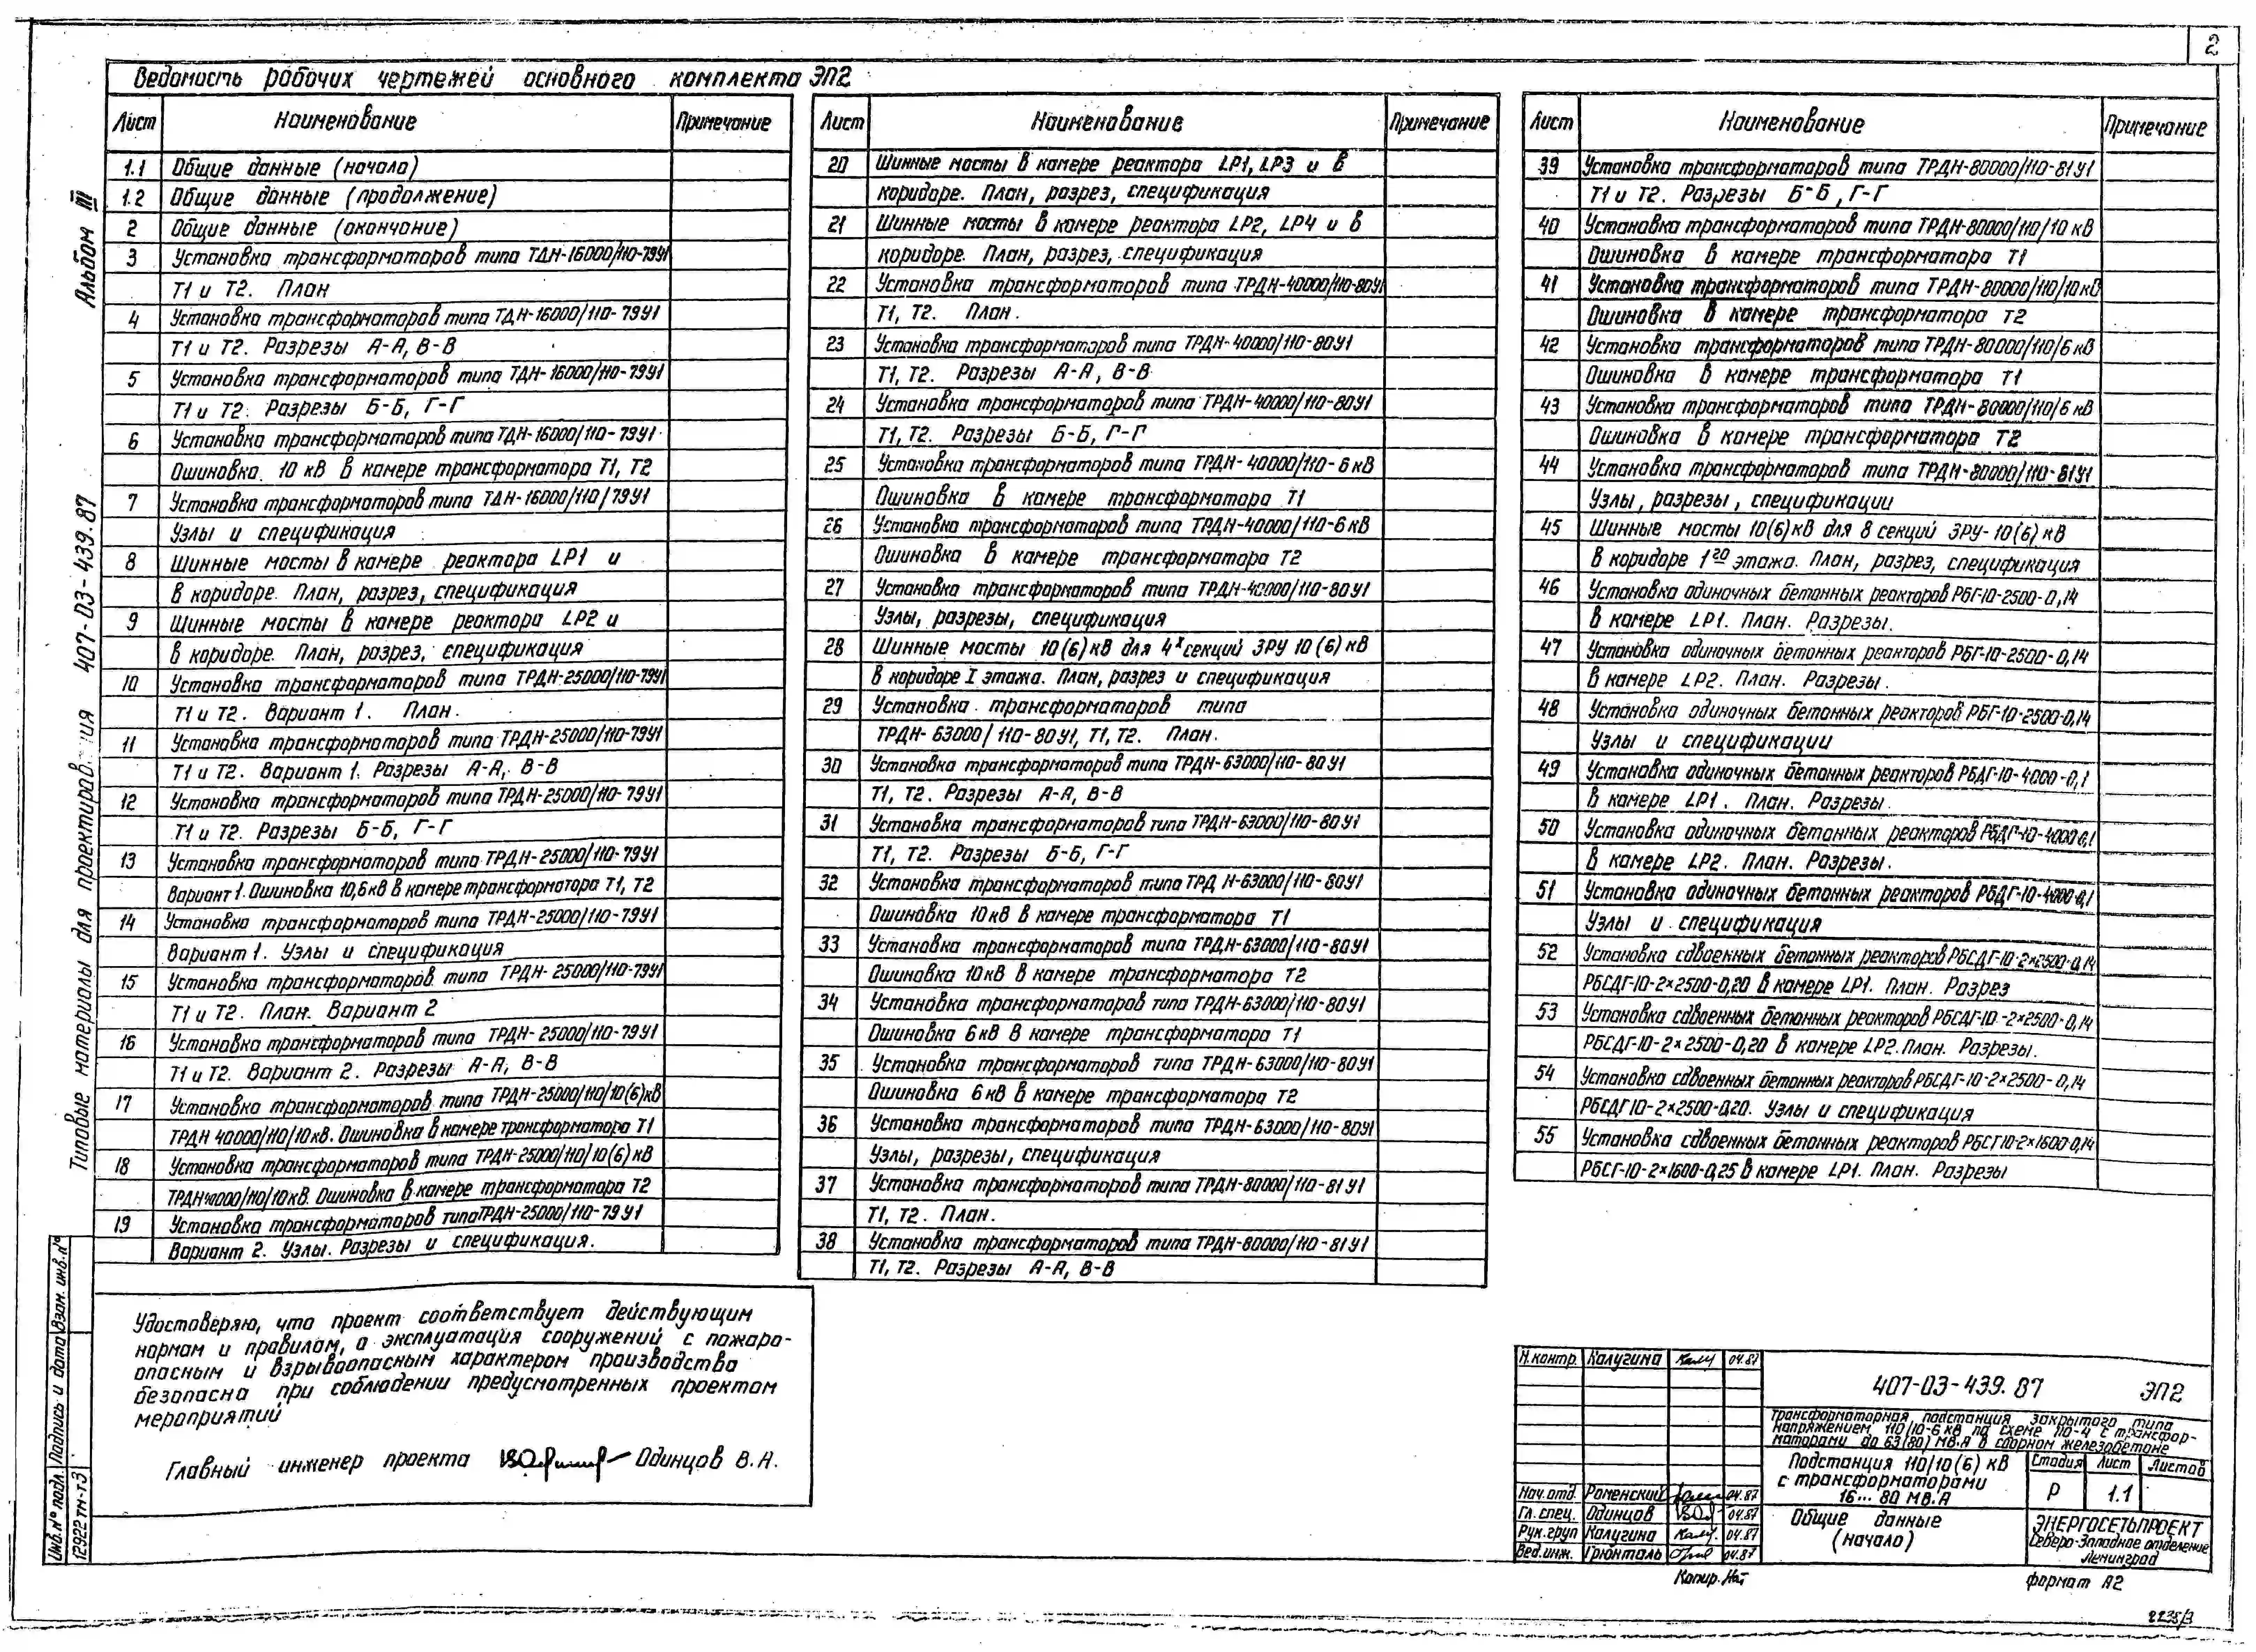 2
Ведомость рабочих чертежей основного комплекта ЭП2
Лист Наименование Примечание
1.1 Общие данные (начало)
1.2 Общие данные (продолжение)
2 Общие данные (окончание)
3 Установка трансформаторов типа ТДН-16000/110-79У1
Т1 и Т2. План
4 Установка трансформаторов типа ТДН-16000/110-79У1
Т1 и Т2. Разрезы А-А, В-В
5 Установка трансформаторов типа ТДН-16000/110-79У1
Т1 и Т2. Разрезы Б-Б, Г-Г
6 Установка трансформаторов типа ТДН-16000/110-79У1
Ошиновка 10 кВ в камере трансформатора Т1, Т2
7 Установка трансформаторов типа ТДН-16000/110/79У1
Узлы и спецификация
8 Шинные мосты в камере реактора LP1 и
в коридоре. План, разрез, спецификация
9 Шинные мосты в камере реактора LP2 и
в коридоре. План, разрез, спецификация
10 Установка трансформаторов типа ТРДН-25000/110-79У1
Т1 и Т2. Вариант 1. План.
11 Установка трансформаторов типа ТРДН-25000/110-79У1
Т1 и Т2. Вариант 1. Разрезы А-А, В-В
12 Установка трансформаторов типа ТРДН-25000/110-79У1
Т1 и Т2. Разрезы Б-Б, Г-Г
13 Установка трансформаторов типа ТРДН-25000/110-79У1
Вариант 1. Ошиновка 10,6кВ в камере трансформатора Т1, Т2
14 Установка трансформаторов типа ТРДН-25000/110-79У1
Вариант 1. Узлы и спецификация
15 Установка трансформаторов типа ТРДН-25000/110-79У1
Т1 и Т2. План. Вариант 2
16 Установка трансформаторов типа ТРДН-25000/110-79У1
Т1 и Т2. Вариант 2. Разрезы А-А, В-В
17 Установка трансформаторов типа ТРДН-25000/110/10(6)кВ
ТРДН 40000/110/10кВ. Ошиновка в камере трансформатора Т1
18 Установка трансформаторов типа ТРДН-25000/110/10(6)кВ
ТРДН40000/110/10кВ. Ошиновка в камере трансформатора Т2
19 Установка трансформаторов типа ТРДН-25000/110-79У1
Вариант 2. Узлы. Разрезы и спецификация.
Лист Наименование Примечание
20 Шинные мосты в камере реактора LP1, LP3 и в
коридоре. План, разрез, спецификация
21 Шинные мосты в камере реактора LP2, LP4 и в
коридоре. План, разрез, спецификация
22 Установка трансформаторов типа ТРДН-40000/110-80У1
Т1, Т2. План.
23 Установка трансформаторов типа ТРДН-40000/110-80У1
Т1, Т2. Разрезы А-А, В-В
24 Установка трансформаторов типа ТРДН-40000/110-80У1
Т1, Т2. Разрезы Б-Б, Г-Г
25 Установка трансформаторов типа ТРДН-40000/110-6кВ
Ошиновка в камере трансформатора Т1
26 Установка трансформаторов типа ТРДН-40000/110-6кВ
Ошиновка в камере трансформатора Т2
27 Установка трансформаторов типа ТРДН-40000/110-80У1
Узлы, разрезы, спецификация
28 Шинные мосты 10(6)кВ для 4х секций ЗРУ 10(6)кВ
в коридоре I этажа. План, разрез и спецификация
29 Установка трансформаторов типа
ТРДН-63000/110-80У1, Т1, Т2. План.
30 Установка трансформаторов типа ТРДН-63000/110-80У1
Т1, Т2. Разрезы А-А, В-В
31 Установка трансформаторов типа ТРДН-63000/110-80У1
Т1, Т2. Разрезы Б-Б, Г-Г
32 Установка трансформаторов типа ТРДН-63000/110-80У1
Ошиновка 10кВ в камере трансформатора Т1
33 Установка трансформаторов типа ТРДН-63000/110-80У1
Ошиновка 10кВ в камере трансформатора Т2
34 Установка трансформаторов типа ТРДН-63000/110-80У1
Ошиновка 6кВ в камере трансформатора Т1
35 Установка трансформаторов типа ТРДН-63000/110-80У1
Ошиновка 6кВ в камере трансформатора Т2
36 Установка трансформаторов типа ТРДН-63000/110-80У1
Узлы, разрезы, спецификация
37 Установка трансформаторов типа ТРДН-80000/110-81У1
Т1, Т2. План.
38 Установка трансформаторов типа ТРДН-80000/110-81У1
Т1, Т2. Разрезы А-А, В-В
Лист Наименование Примечание
39 Установка трансформаторов типа ТРДН-80000/110-81У1
Т1 и Т2. Разрезы Б-Б, Г-Г
40 Установка трансформаторов типа ТРДН-80000/110/10 кВ
Ошиновка в камере трансформатора Т1
41 Установка трансформаторов типа ТРДН-80000/110/10кВ
Ошиновка в камере трансформатора Т2
42 Установка трансформаторов типа ТРДН-80000/110/6кВ
Ошиновка в камере трансформатора Т1
43 Установка трансформаторов типа ТРДН-80000/110/6кВ
Ошиновка в камере трансформатора Т2
44 Установка трансформаторов типа ТРДН-80000/110-81У1
Узлы, разрезы, спецификации
45 Шинные мосты 10(6)кВ для 8 секций ЗРУ-10(6)кВ
в коридоре 1го этажа. План, разрез, спецификация
46 Установка одиночных бетонных реакторов РБГ-10-2500-0,14
в камере LP1. План. Разрезы.
47 Установка одиночных бетонных реакторов РБГ-10-2500-0,14
в камере LP2. План. Разрезы.
48 Установка одиночных бетонных реакторов РБГ-10-2500-0,14
Узлы и спецификации
49 Установка одиночных бетонных реакторов РБДГ-10-4000-0,1
в камере LP1. План. Разрезы.
50 Установка одиночных бетонных реакторов РБДГ-10-4000-0,1
в камере LP2. План. Разрезы.
51 Установка одиночных бетонных реакторов РБДГ-10-4000-0,1
Узлы и спецификация
52 Установка сдвоенных бетонных реакторов РБСДГ-10-2×2500-0,14
РБСДГ-10-2×2500-0,20 в камере LP1. План. Разрез
53 Установка сдвоенных бетонных реакторов РБСДГ-10-2×2500-0,14
РБСДГ-10-2×2500-0,20 в камере LP2. План. Разрезы.
54 Установка сдвоенных бетонных реакторов РБСДГ-10-2×2500-0,14
РБСДГ10-2×2500-0,20. Узлы и спецификация
55 Установка сдвоенных бетонных реакторов РБСГ10-2×1600-0,14
РБСГ-10-2×1600-0,25 в камере LP1. План. Разрезы
Альбом III
Типовые материалы для проектирования 407-03-439.87
Удостоверяю, что проект соответствует действующим
нормам и правилам, а эксплуатация сооружений с пожаро-
опасным и взрывоопасным характером производства
безопасна при соблюдении предусмотренных проектом
мероприятий
Главный инженер проекта Одинцов В.А.
Инв.№ подл. Подпись и дата Взам. инв.№
12922тм-т3
Н.контр. Калугина 04.87
Нач.отд. Роменский 04.87
Гл.спец. Одинцов 04.87
Рук.груп Калугина 04.87
Вед.инж. Грюнталь 04.87
407-03-439.87 ЭП2
Трансформаторная подстанция закрытого типа
напряжением 110/10-6 кВ по схеме 110-4 с трансфор-
маторами до 63(80) МВ.А в сборном железобетоне
Подстанция 110/10(6) кВ
с трансформаторами
16... 80 МВ.А
Стадия Лист Листов
Р 1.1
Общие данные
(начало)
ЭНЕРГОСЕТЬПРОЕКТ
Северо-Западное отделение
Ленинград
Копир.
формат А2